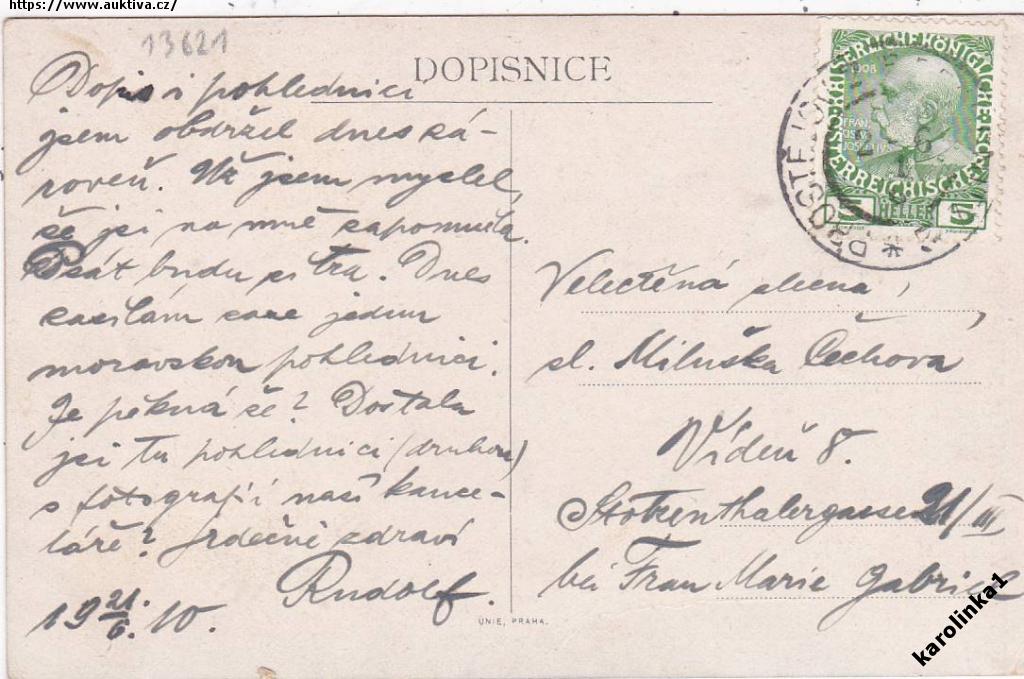 www.auktiva.cz/
13621
DOPISNICE
Dopis i pohlednici
jsem obdržel dnes zá-
roveň. Už jsem myslel,
že jsi na mně zapomněla.
Psát budu zítra. Dnes
zasílám zase jednu
moravskou pohlednici.
Je pěkná že? Dostala
jsi tu pohlednici (druhou)
s fotografií naší kance-
láře? Srdečně zdraví
Rudolf.
19 21./6. 10.
UNIE, PRAHA.
1908
FRANZ JOSEPH I
KAISERLICHE KÖNIGLICHE ÖSTERREICHISCHE POST
5 HELLER 5
PROSTĚJOV
Velectěná slečna,
sl. Miluška Čechova
Vídeň 8.
Stolzenthalergasse 21/III
bei Frau Marie Gabriel
karolinka1